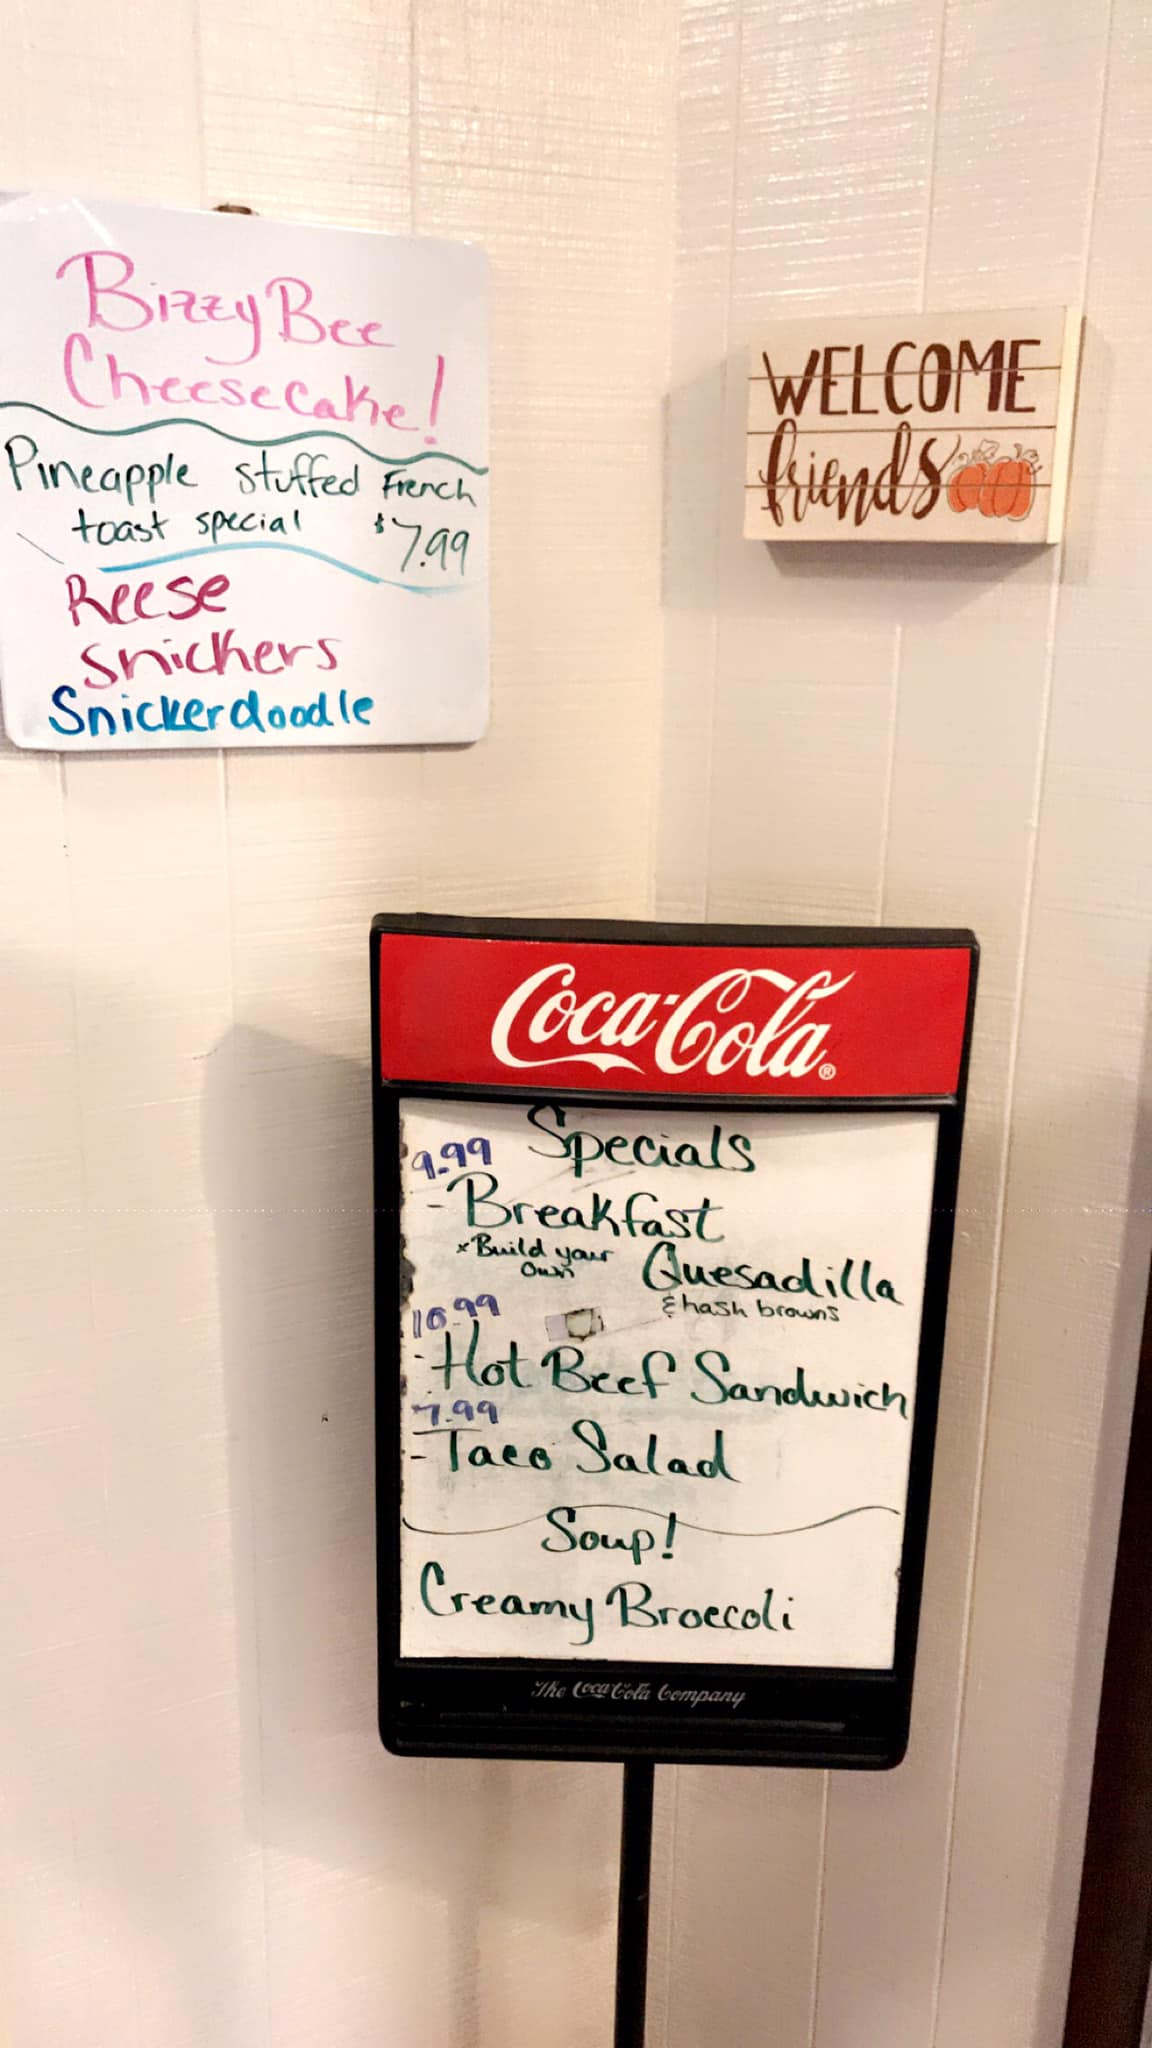 Bizzy Bee
Cheesecake!
Pineapple stuffed French
toast special $7.99
Reese
Snickers
Snickerdoodle
WELCOME
friends
Coca-Cola®
Specials
9.99
- Breakfast
x Build your
Own
Quesadilla
& hash browns
10.99
- Hot Beef Sandwich
7.99
- Taco Salad
Soup!
Creamy Broccoli
The Coca-Cola Company